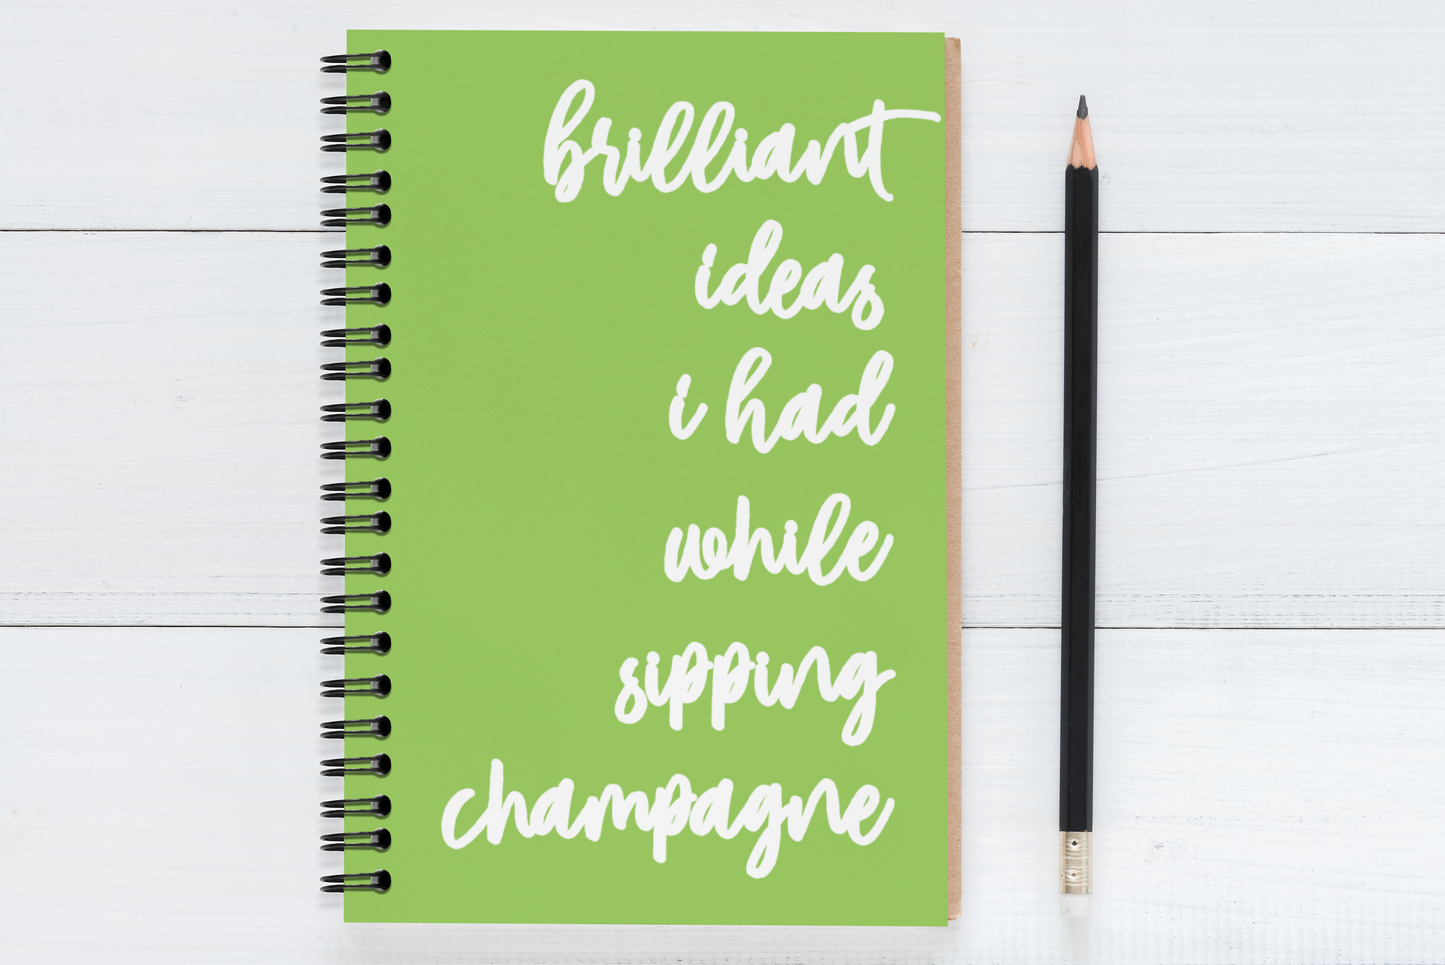 brilliant
ideas
i had
while
sipping
champagne